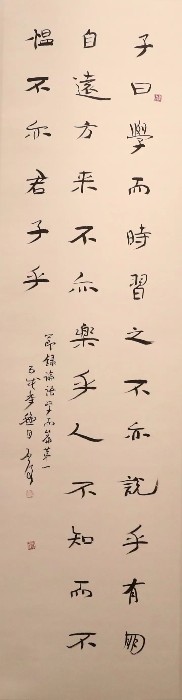 子曰學而時習之不亦說乎有朋
自遠方来不亦樂乎人不知而不
慍不亦君子乎
節録論語學而第一